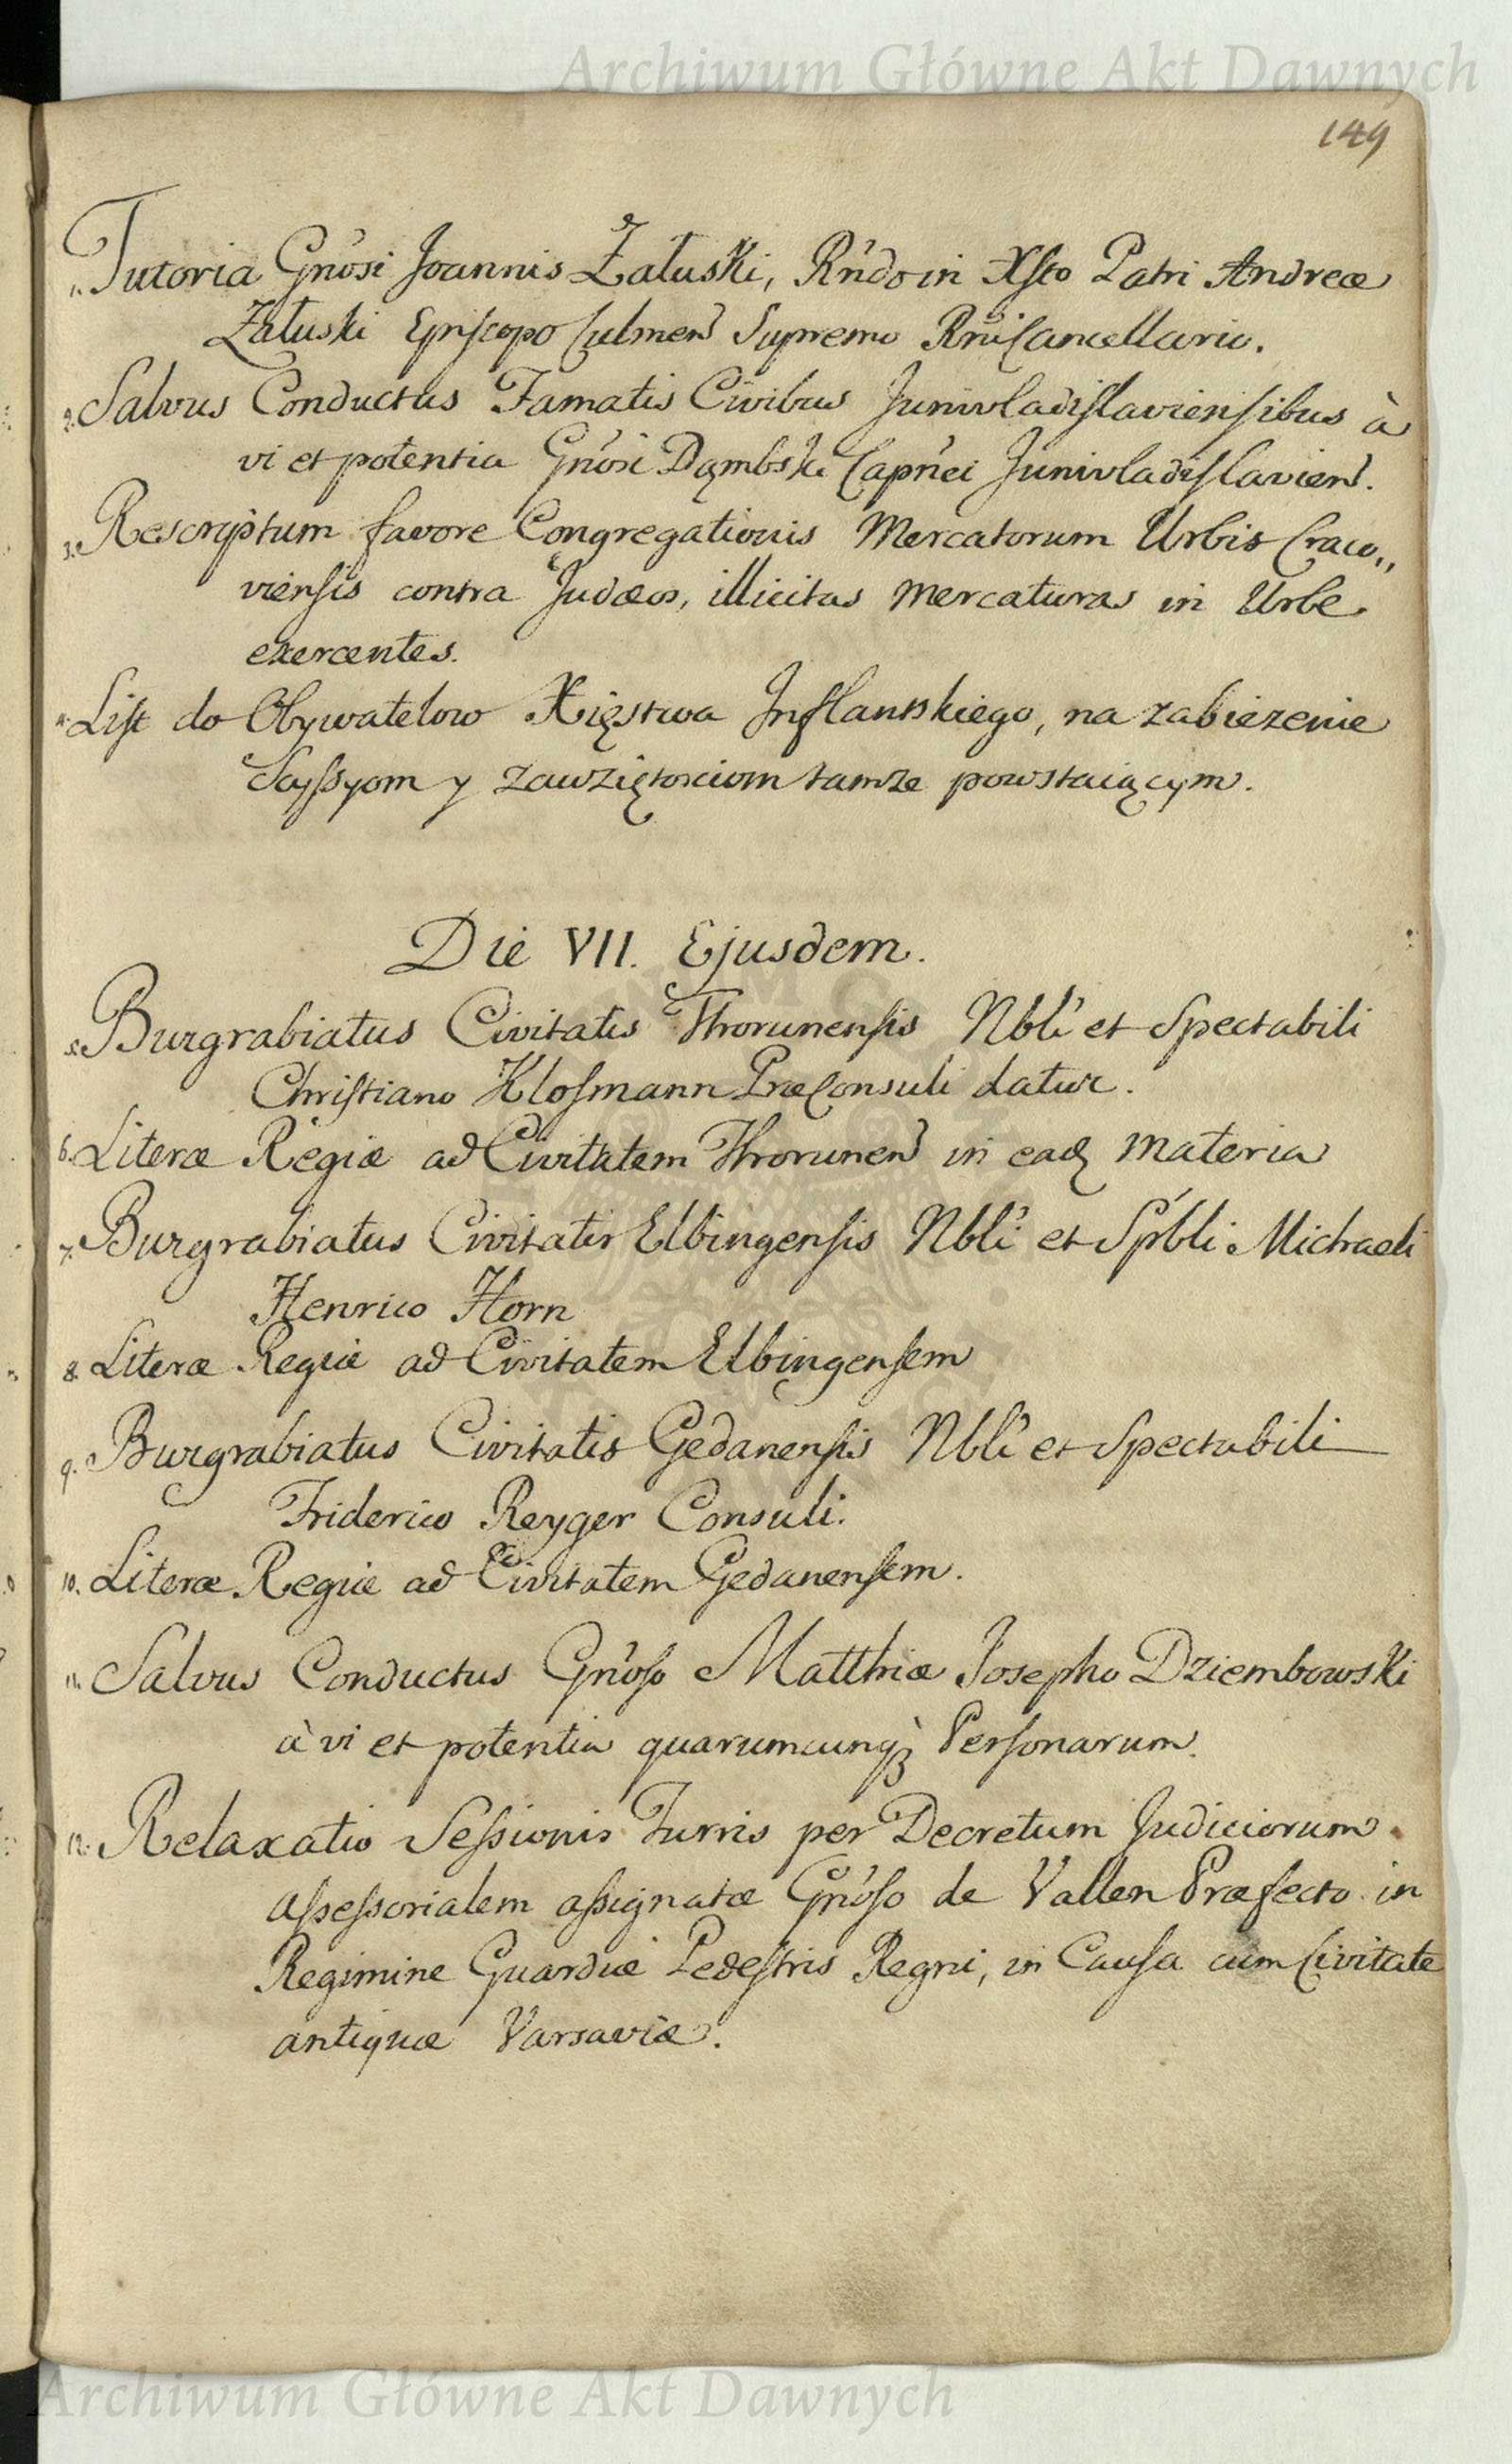 Archiwum Główne Akt Dawnych
149
1. Tutoria Gnosi Joannis Załuski, Rndo in Xsto Patri Andreæ
Załuski Episcopo Culmen Supremo Rni Cancellario.
2. Salvus Conductus Famatis Civibus Junivladislaviensibus à
vi et potentia Gnosi Dąmbski Capnei Junivladislavien.
3. Rescriptum favore Congregationis Mercatorum Urbis Craco„
viensis contra Judæos, illicitas Mercaturas in Urbe
exercentes.
4. List do Obywatelow Xięstwa Inflantskiego, na zabiezenie
Scyssyom y zawziętosciom tamze powstaiącym.
Die VII. Ejusdem.
5. Burgrabiatus Civitatis Thorunensis Nbli et Spectabili
Christiano Klosmann PræConsuli datur.
6. Literæ Regiæ ad Civitatem Thorunen in eadq materia
7. Burgrabiatus Civitatis Elbingensis Nbli et Spbli Michaeli
Henrico Horn
8. Literæ Regiæ ad Civitatem Elbingensem
9. Burgrabiatus Civitatis Gedanensis Nbli et Spectabili
Friderico Reyger Consuli.
10. Literæ Regiæ ad Civitatem Gedanensem.
11. Salvus Conductus Gnoso Matthiæ Josepho Dziembowski
à vi et potentia quarumcunqz Personarum.
12. Relaxatio Sessionis Turris per Decretum Judiciorum
Assessorialem assignatæ Gnoso de Vallen Præfecto in
Regimine Guardiæ Pedestris Regni, in Causa cum Civitate
antiquæ Varsaviæ.
Archiwum Główne Akt Dawnych